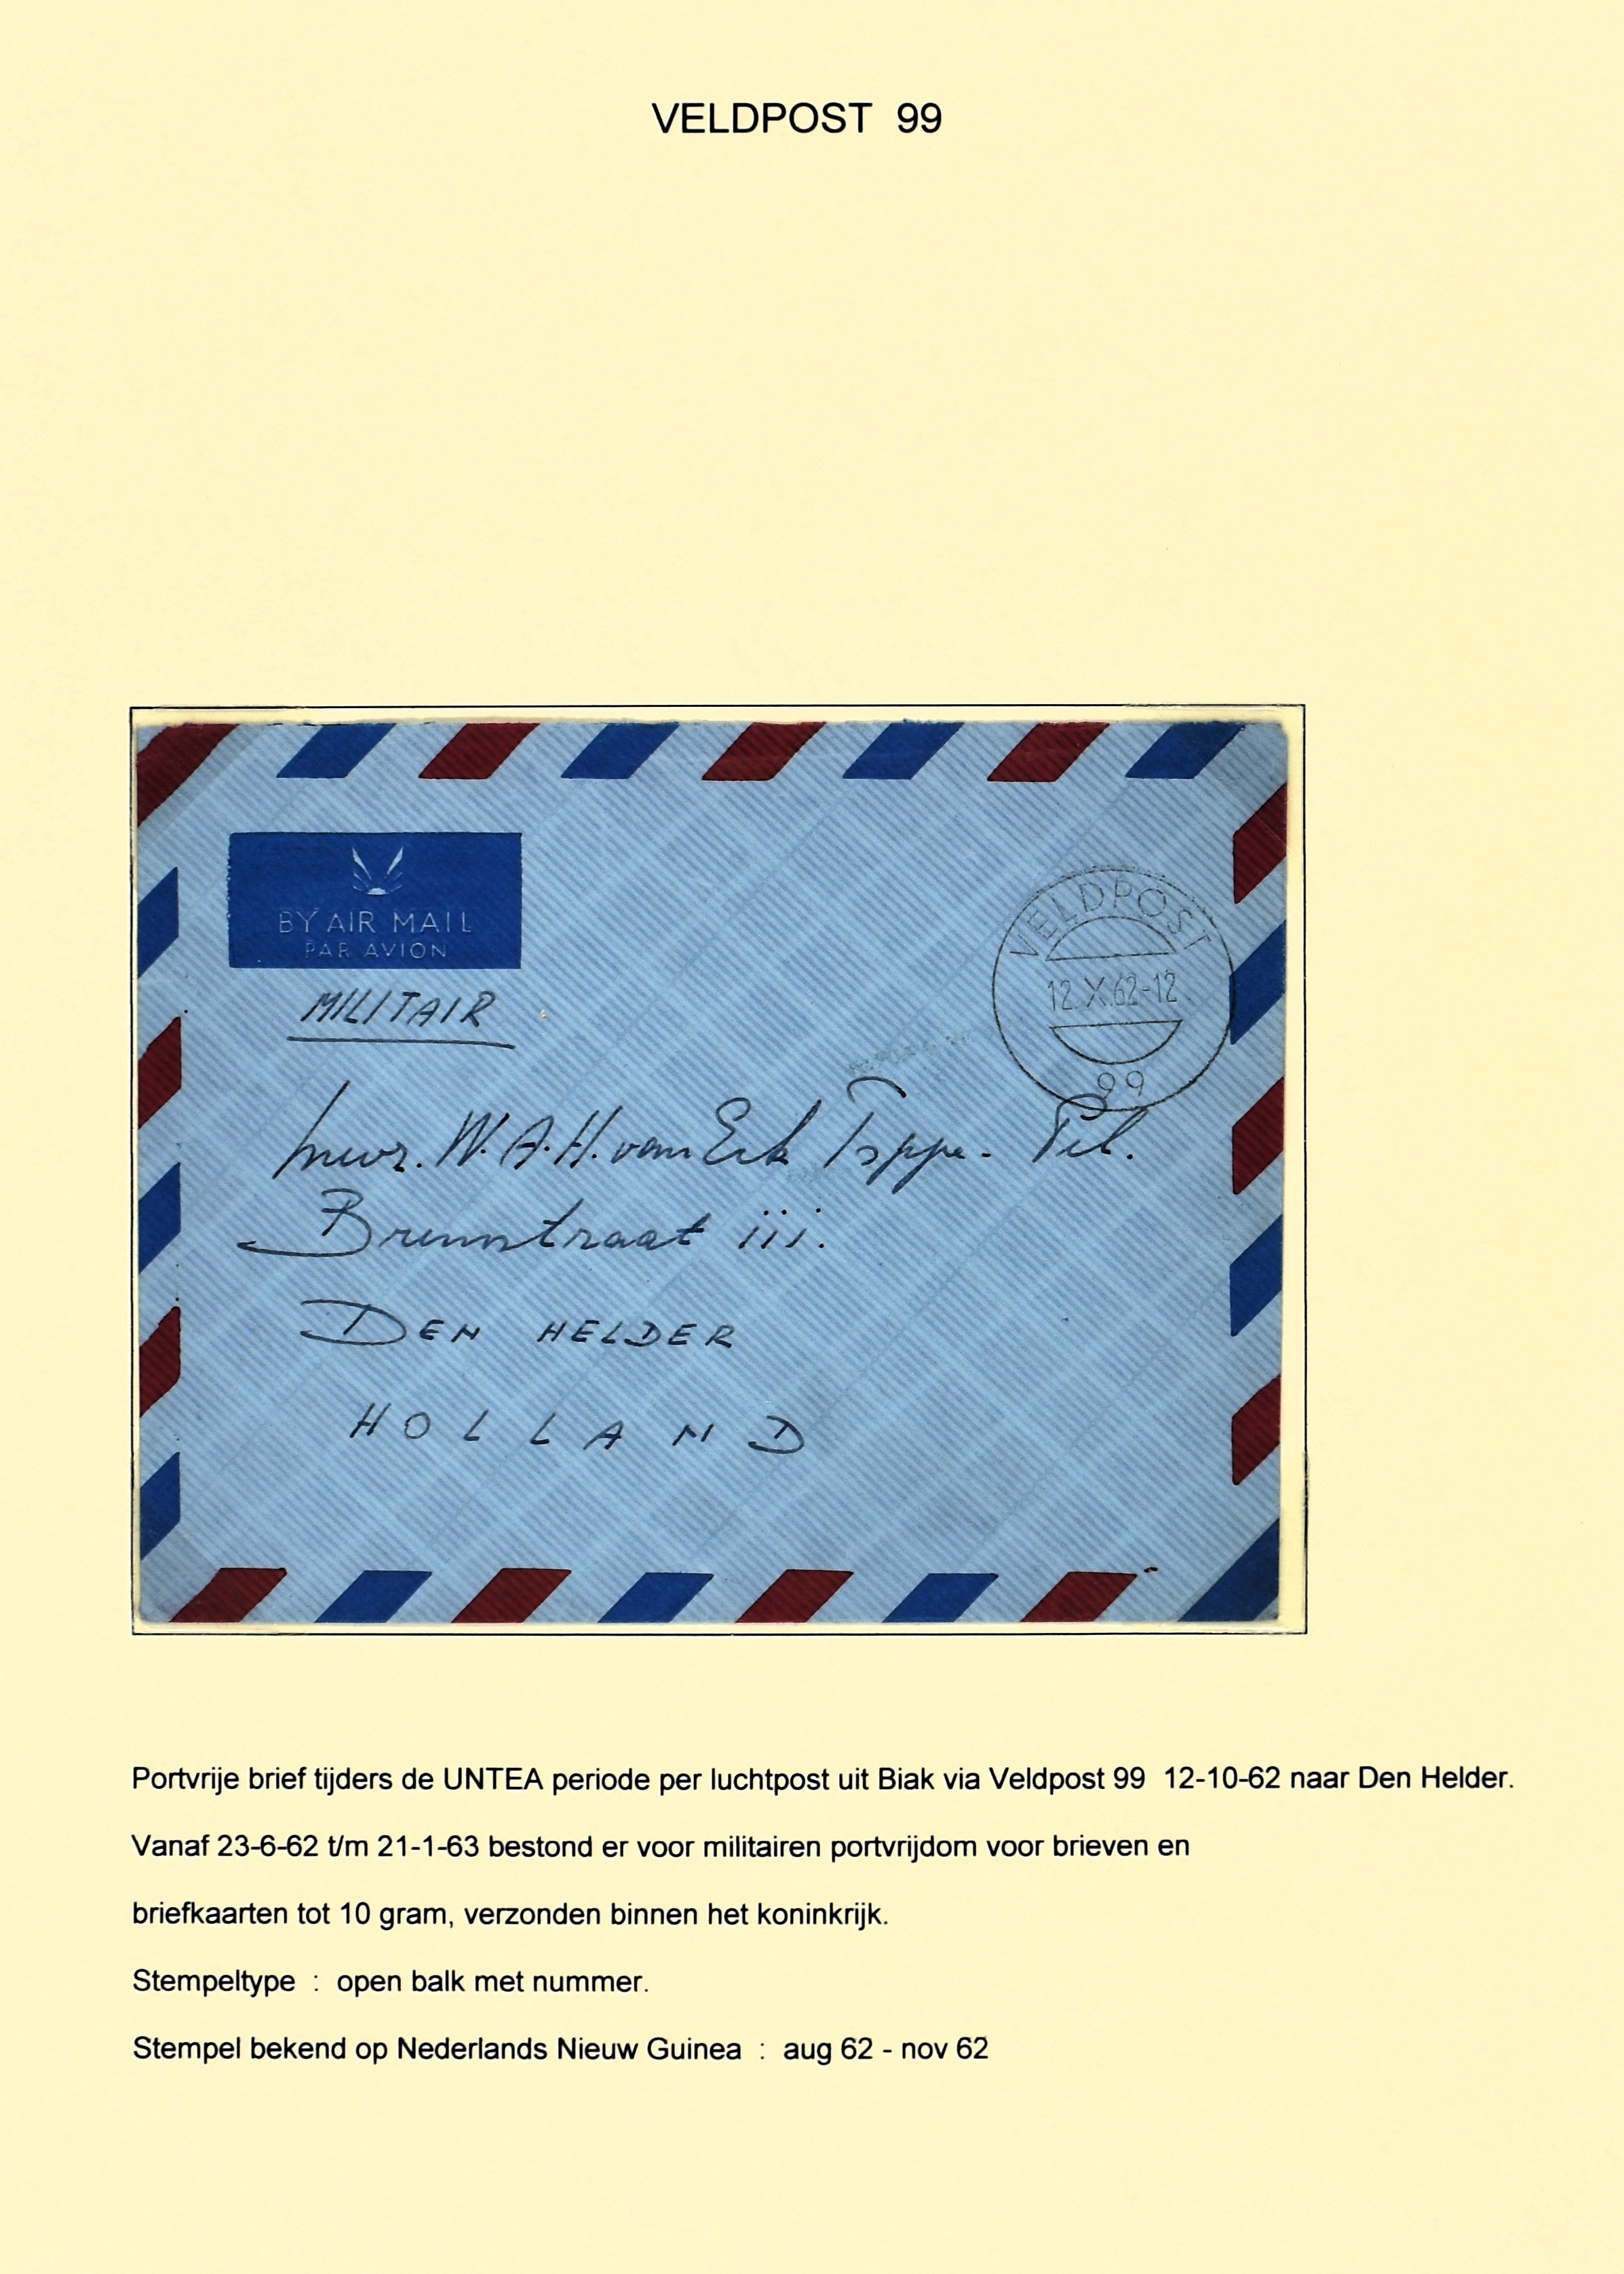 VELDPOST 99
BY AIR MAIL
PAR AVION
MILITAIR
VELDPOST
12.X.62-12
99
mevr. W. A. H. van Eck
straat 111.
DEN HELDER
HOLLAND
Portvrije brief tijders de UNTEA periode per luchtpost uit Biak via Veldpost 99 12-10-62 naar Den Helder.
Vanaf 23-6-62 t/m 21-1-63 bestond er voor militairen portvrijdom voor brieven en
briefkaarten tot 10 gram, verzonden binnen het koninkrijk.
Stempeltype : open balk met nummer.
Stempel bekend op Nederlands Nieuw Guinea : aug 62 - nov 62